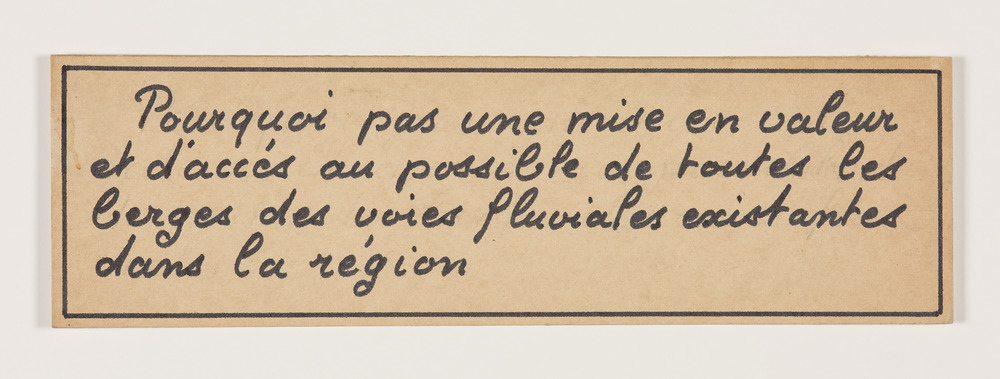 Pourquoi pas une mise en valeur
et d'accés au possible de toutes les
berges des voies fluviales existantes
dans la région